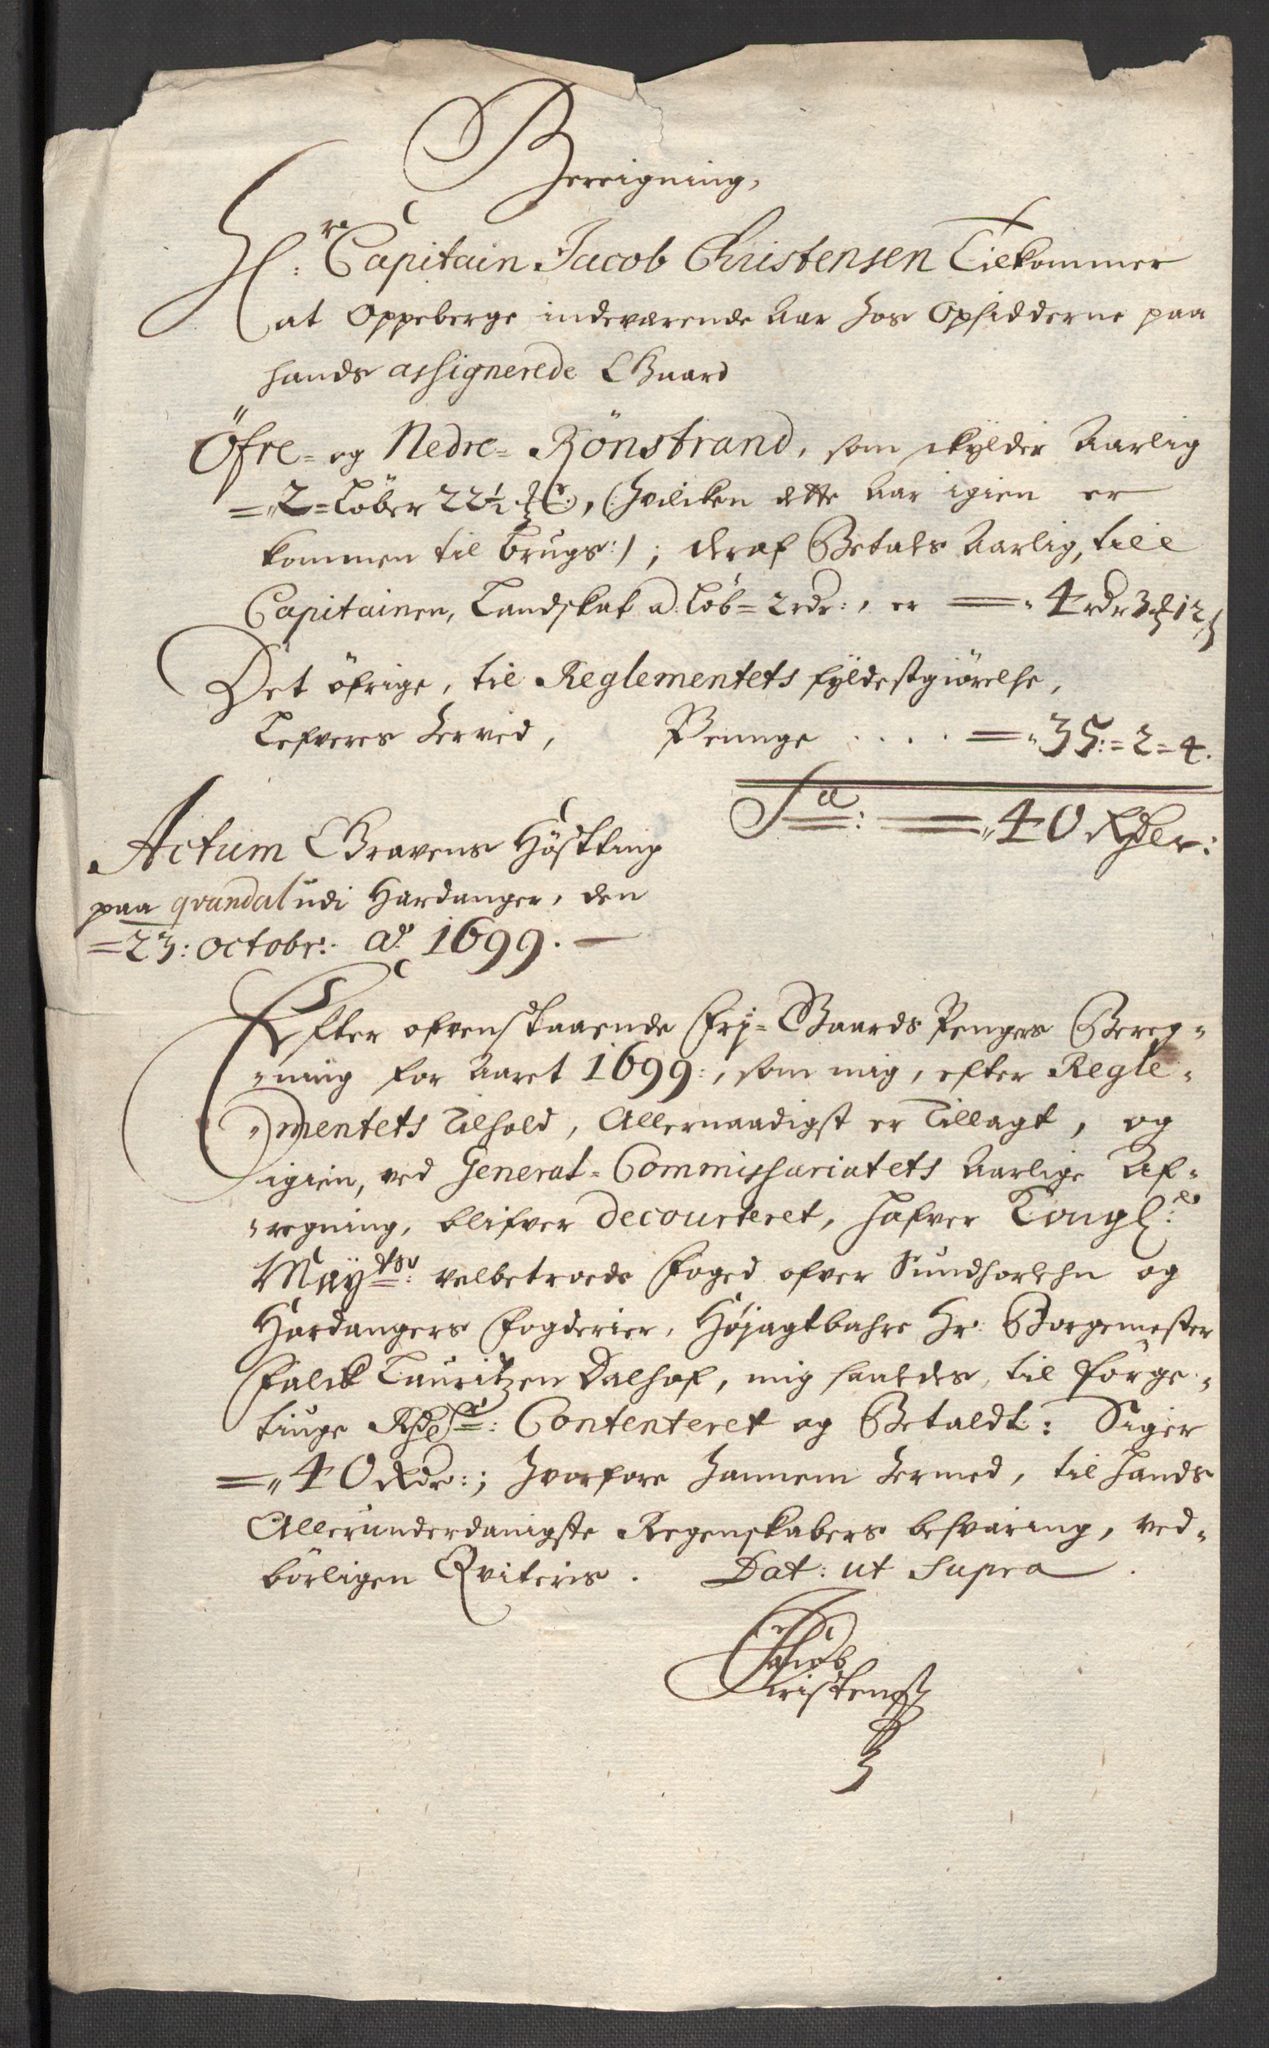 Bereigning,
Hr: Capitain Jacob Christensen Tilkommer
at Oppeberge indeværende Aar hos Opsidderne paa
hands assignerede Gaard
Öfre= og Nedre= Rönstrand, som skylder Aarlig
=„2=Löber 22½ (hvilcken dette Aar igien er
kommen til brugs:/; deraf Betales Aarlig, till
Capitainen, Landskat a Löb= 2 rdr:, er =„4 rdr 3 12
Det öfrige, til Reglementets fyldestgiörelse,
Lefveres herved, Penge .... =„35:=2=4.
Sa: =„40 Rdlr:
Actum Gravens Höstting
paa qvandal udi Hardanger, den
=23: octobr: Ao 1699.
Efter ofvenstaaende Frj=Gaards Penges Bereg=
=ning for Aaret 1699:, som mig, efter Regle=
=mentets Tilhold, Allernaadigst er Tillagt, og
igien, ved General=Commissariatets Aarlige Af=
=regning, blifver decourteret, hafver Kongl:
Mayts: velbetroede Foged ofver Sundhorlehn og
Hardangers Fogderier, Höjagtbahre Hr: Borgemester
Falck Lauritzen Dalhof, mig saaledes, til förge=
tiuge Rdlr: Contenteret og Betaldt: Siger
=„40 Rdr:; hvorfore hannem hermed, til hands
Allerunderdanigste Regenskabers besvaring, ved=
börligen Qviteris. Dat: ut supra.
Jacob
Christens